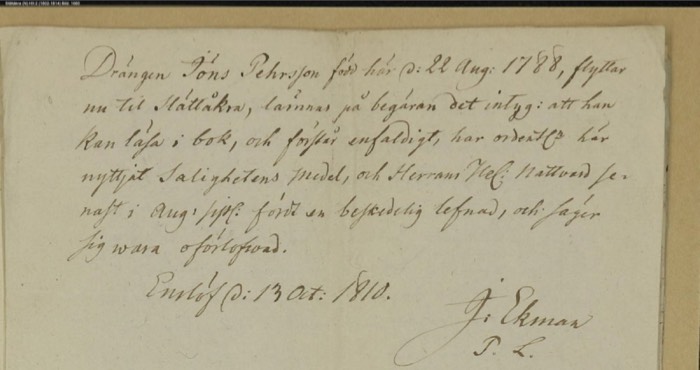 Drängen Jöns Pehrsson född här d: 22 Aug: 1788, flyttar
nu til Slättåkra, lämnas på begäran det intyg: att han
kan läsa i bok, och förstår enfaldigt, har ordentl: här
nyttjat Salighetens medel, och Herrans Hel: Nattvard se-
nast i Aug: sistl: fördt en beskedelig lefnad, och säger
sig wara oförlofwad.
Enslöf d: 13 Oct: 1810.
J: Ekman
P. L.